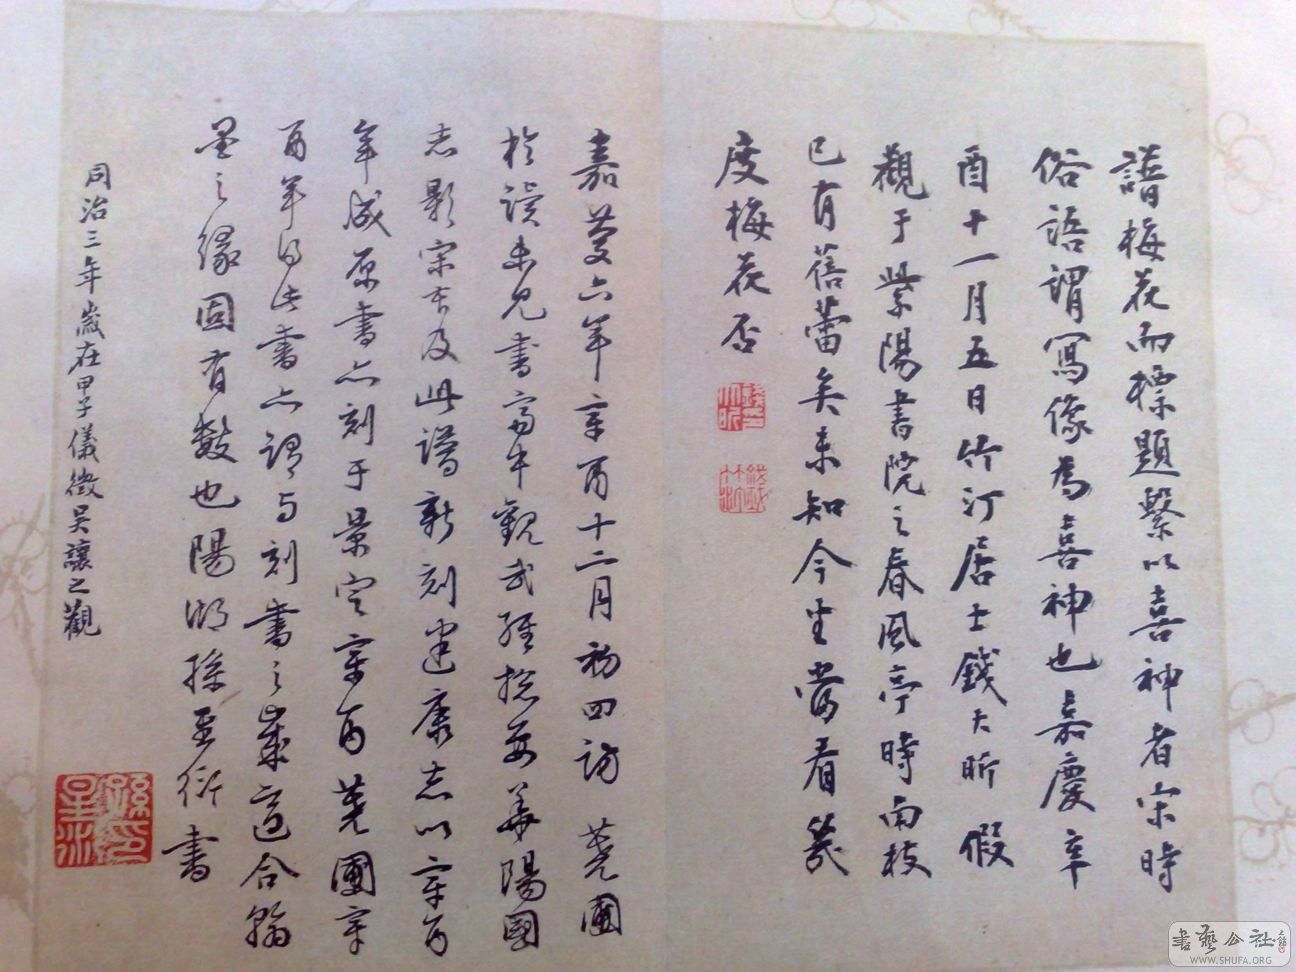 譜梅花而標題繫以喜神者宋時
俗語謂寫像為喜神也嘉慶辛
酉十一月五日竹汀居士錢大昕假
觀于紫陽書院之春風亭時南枝
已有蓓蕾矣未知今坐當看幾
度梅花否
嘉慶六年辛酉十二月初四訪蕘圃
於讀未見書齋中觀武經總要華陽國
志影宋本及此譜新刻建康志以辛酉
年成原書亦刻于景定辛酉蕘圃辛
酉年得此書亦謂与刻書之歲適合翰
墨之緣固有數也陽湖孫星衍書
同治三年歲在甲子儀徵吳讓之觀
孫星衍印
書藝公社
WWW.SHUFA.ORG